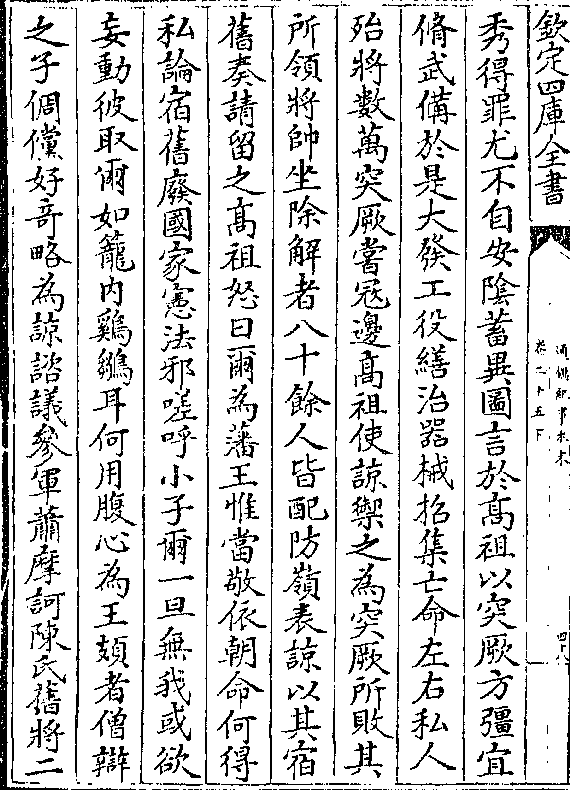 欽定四庫全書
通鑑紀事本末
卷二十五下
四十八
秀得罪尤不自安陰蓄異圖言於髙祖以突厥方彊宜
脩武備於是大發工役繕治器械招集亡命左右私人
殆將數萬突厥嘗冦邊髙祖使諒禦之為突厥所敗其
所領將帥坐除解者八十餘人皆配防嶺表諒以其宿
舊奏請留之髙祖怒曰爾為藩王惟當敬依朝命何得
私論宿舊廢國家憲法邪嗟呼小子爾一旦無我或欲
妄動彼取爾如籠内鷄鶵耳何用腹心為王頍者僧辯
之子倜儻好竒略為諒諮議參軍蕭摩訶陳氏舊將二